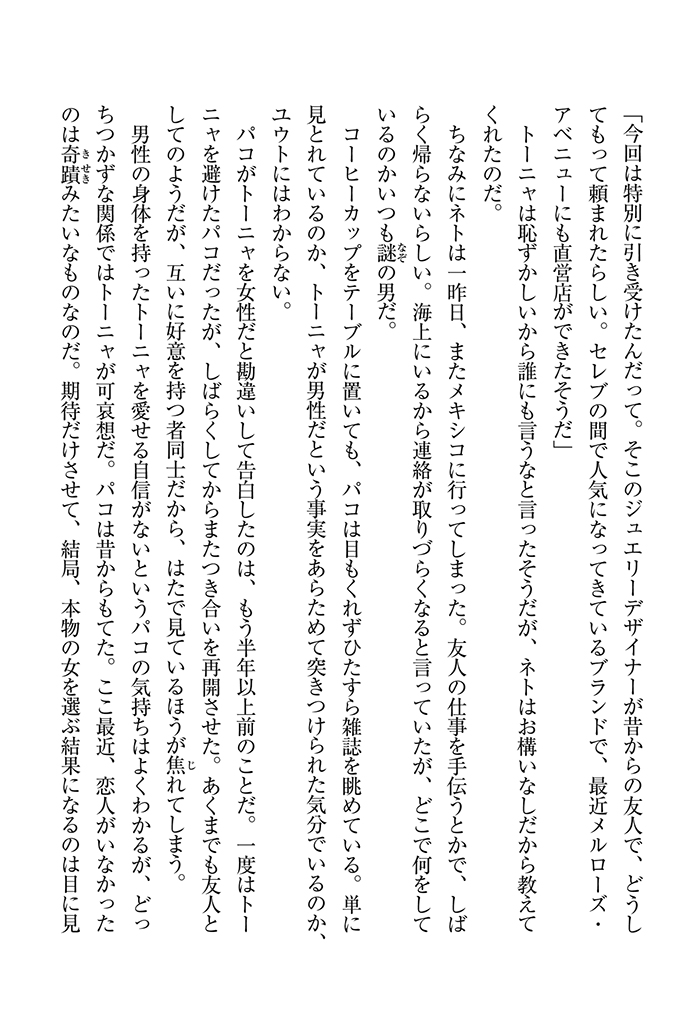 「今回は特別に引き受けたんだって。そこのジュエリーデザイナーが昔からの友人で、どうし
てもって頼まれたらしい。セレブの間で人気になってきているブランドで、最近メルローズ・
アベニューにも直営店ができたそうだ」
トーニャは恥ずかしいから誰にも言うなと言ったそうだが、ネトはお構いなしだから教えて
くれたのだ。
ちなみにネトは一昨日、またメキシコに行ってしまった。友人の仕事を手伝うとかで、しば
らく帰らないらしい。海上にいるから連絡が取りづらくなると言っていたが、どこで何をして
いるのかいつも謎なぞの男だ。
コーヒーカップをテーブルに置いても、パコは目もくれずひたすら雑誌を眺めている。単に
見とれているのか、トーニャが男性だという事実をあらためて突きつけられた気分でいるのか、
ユウトにはわからない。
パコがトーニャを女性だと勘違いして告白したのは、もう半年以上前のことだ。一度はトー
ニャを避けたパコだったが、しばらくしてからまたつき合いを再開させた。あくまでも友人と
してのようだが、互いに好意を持つ者同士だから、はたで見ているほうが焦じれてしまう。
男性の身体を持ったトーニャを愛せる自信がないというパコの気持ちはよくわかるが、どっ
ちつかずな関係ではトーニャが可哀想だ。パコは昔からもてた。ここ最近、恋人がいなかった
のは奇蹟きせきみたいなものなのだ。期待だけさせて、結局、本物の女を選ぶ結果になるのは目に見